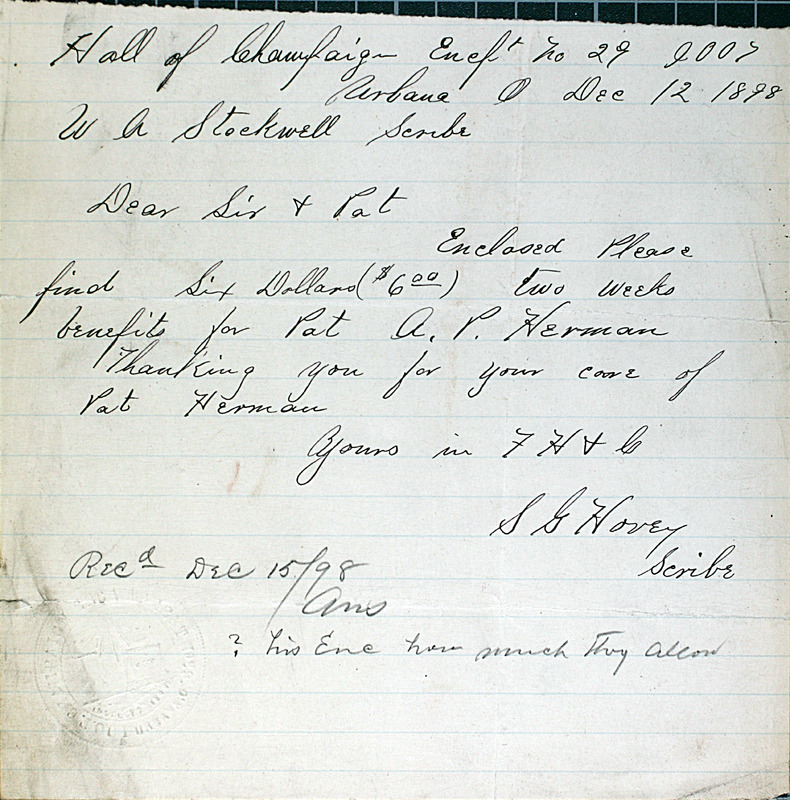 Hall of Champaign Encp't No 29 IOOF
Urbana O Dec 12 1898
W A Stockwell Scribe
Dear Sir & Pat
Enclosed Please
find Six Dollars ($6 00) two weeks
benefits for Pat A. P. Herman
Thanking you for your care of
Pat Herman
Yours in F H & C
S G Hovey
Scribe
Rec'd Dec 15/98
Ans
? his Enc how much they allow